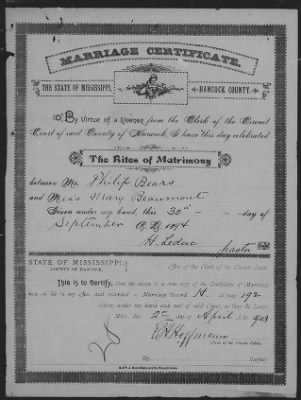 MARRIAGE CERTIFICATE.
THE STATE OF MISSISSIPPI, HANCOCK COUNTY.
By Virtue of a License from the Clerk of the Circuit
Court of said County of Hancock, I have this day celebrated
The Rites of Matrimony
between Mr. Philip Bears
and Miss Mary Beaumont
Given under my hand, this 30th day of
September A. D. 1894
H. Leduc
STATE OF MISSISSIPPI
COUNTY OF HANCOCK
Office of the Clerk of the Circuit Court
This is to Certify, that the above is a true copy of the Certificate of Marriage
now on file in my office and recorded in Marriage Record H at page 192
Given under my hand and seal of
Miss. 2nd day of April
Hoffmann
Clerk of the Circuit Court
By Deputy
28